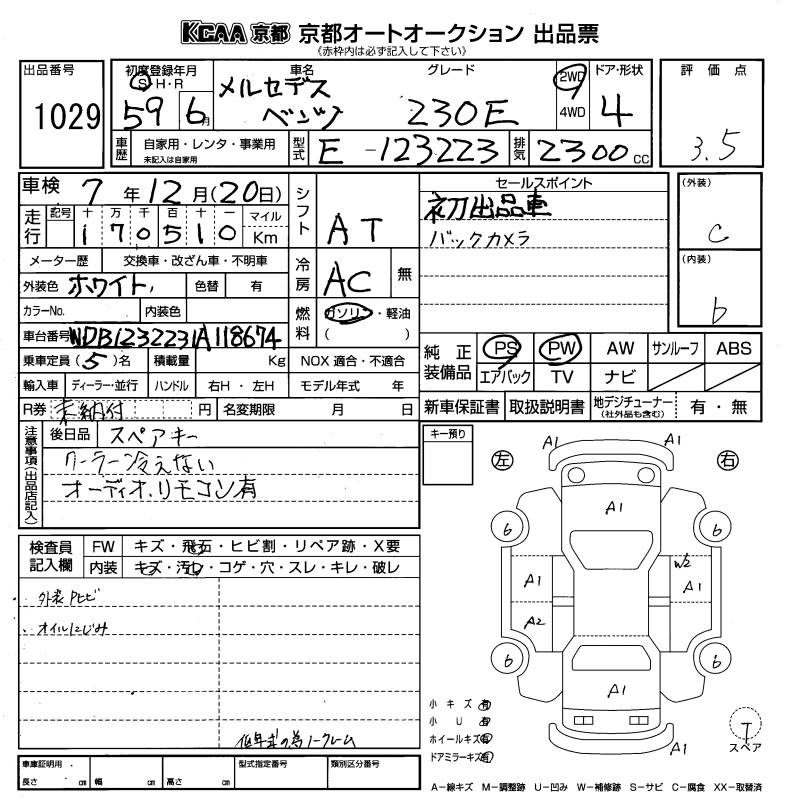 KCAA 京都 京都オートオークション 出品票
(赤枠内は必ず記入して下さい)
出品番号 1029
初度登録年月 S・H・R 59 6月
車名 メルセデス ベンツ
グレード 230E
2WD 4WD
ドア・形状 4
評価点 3.5
車歴 自家用・レンタ・事業用 未記入は自家用
型式 E-123223
排気 2300cc
車検 7年12月(20日)
シフト AT
セールスポイント
初出品車
バックカメラ
(外装) C
(内装) b
走行 記号 十 万 千 百 十 一 マイル Km
1 7 0 5 1 0
メーター歴 交換車・改ざん車・不明車
冷房 AC 無
外装色 ホワイト 色替 有
カラーNo. 内装色
燃料 ガソリン・軽油 ( )
車台番号 WDB1232231A118674
乗車定員(5)名 積載量 Kg NOX 適合・不適合
純正装備品 PS PW AW サンルーフ ABS
エアバック TV ナビ
輸入車 ディーラー・並行 ハンドル 右H・左H モデル年式 年
R券 未納付 円 名変期限 月 日
新車保証書 取扱説明書 地デジチューナー (社外品も含む) 有・無
注意事項(出品店記入)
後日品 スペアキー
クーラー冷えない
オーディオ.リモコン有
キー預り
左 右
A1 A1
A1
b b
W2
A1 A1
A2
b b
A1
A1
検査員記入欄 FW キズ・飛石・ヒビ割・リペア跡・X要
内装 キズ・汚レ・コゲ・穴・スレ・キレ・破レ
・オイルにじみ
低年式の為ノークレーム
小キズ 有
小U 有
ホイールキズ 有
ドアミラーキズ 有
T
スペア
車庫証明用 長さ cm 幅 cm 高さ cm 型式指定番号 類別区分番号
A−線キズ M−調整跡 U−凹み W−補修跡 S−サビ C−腐食 XX−取替済